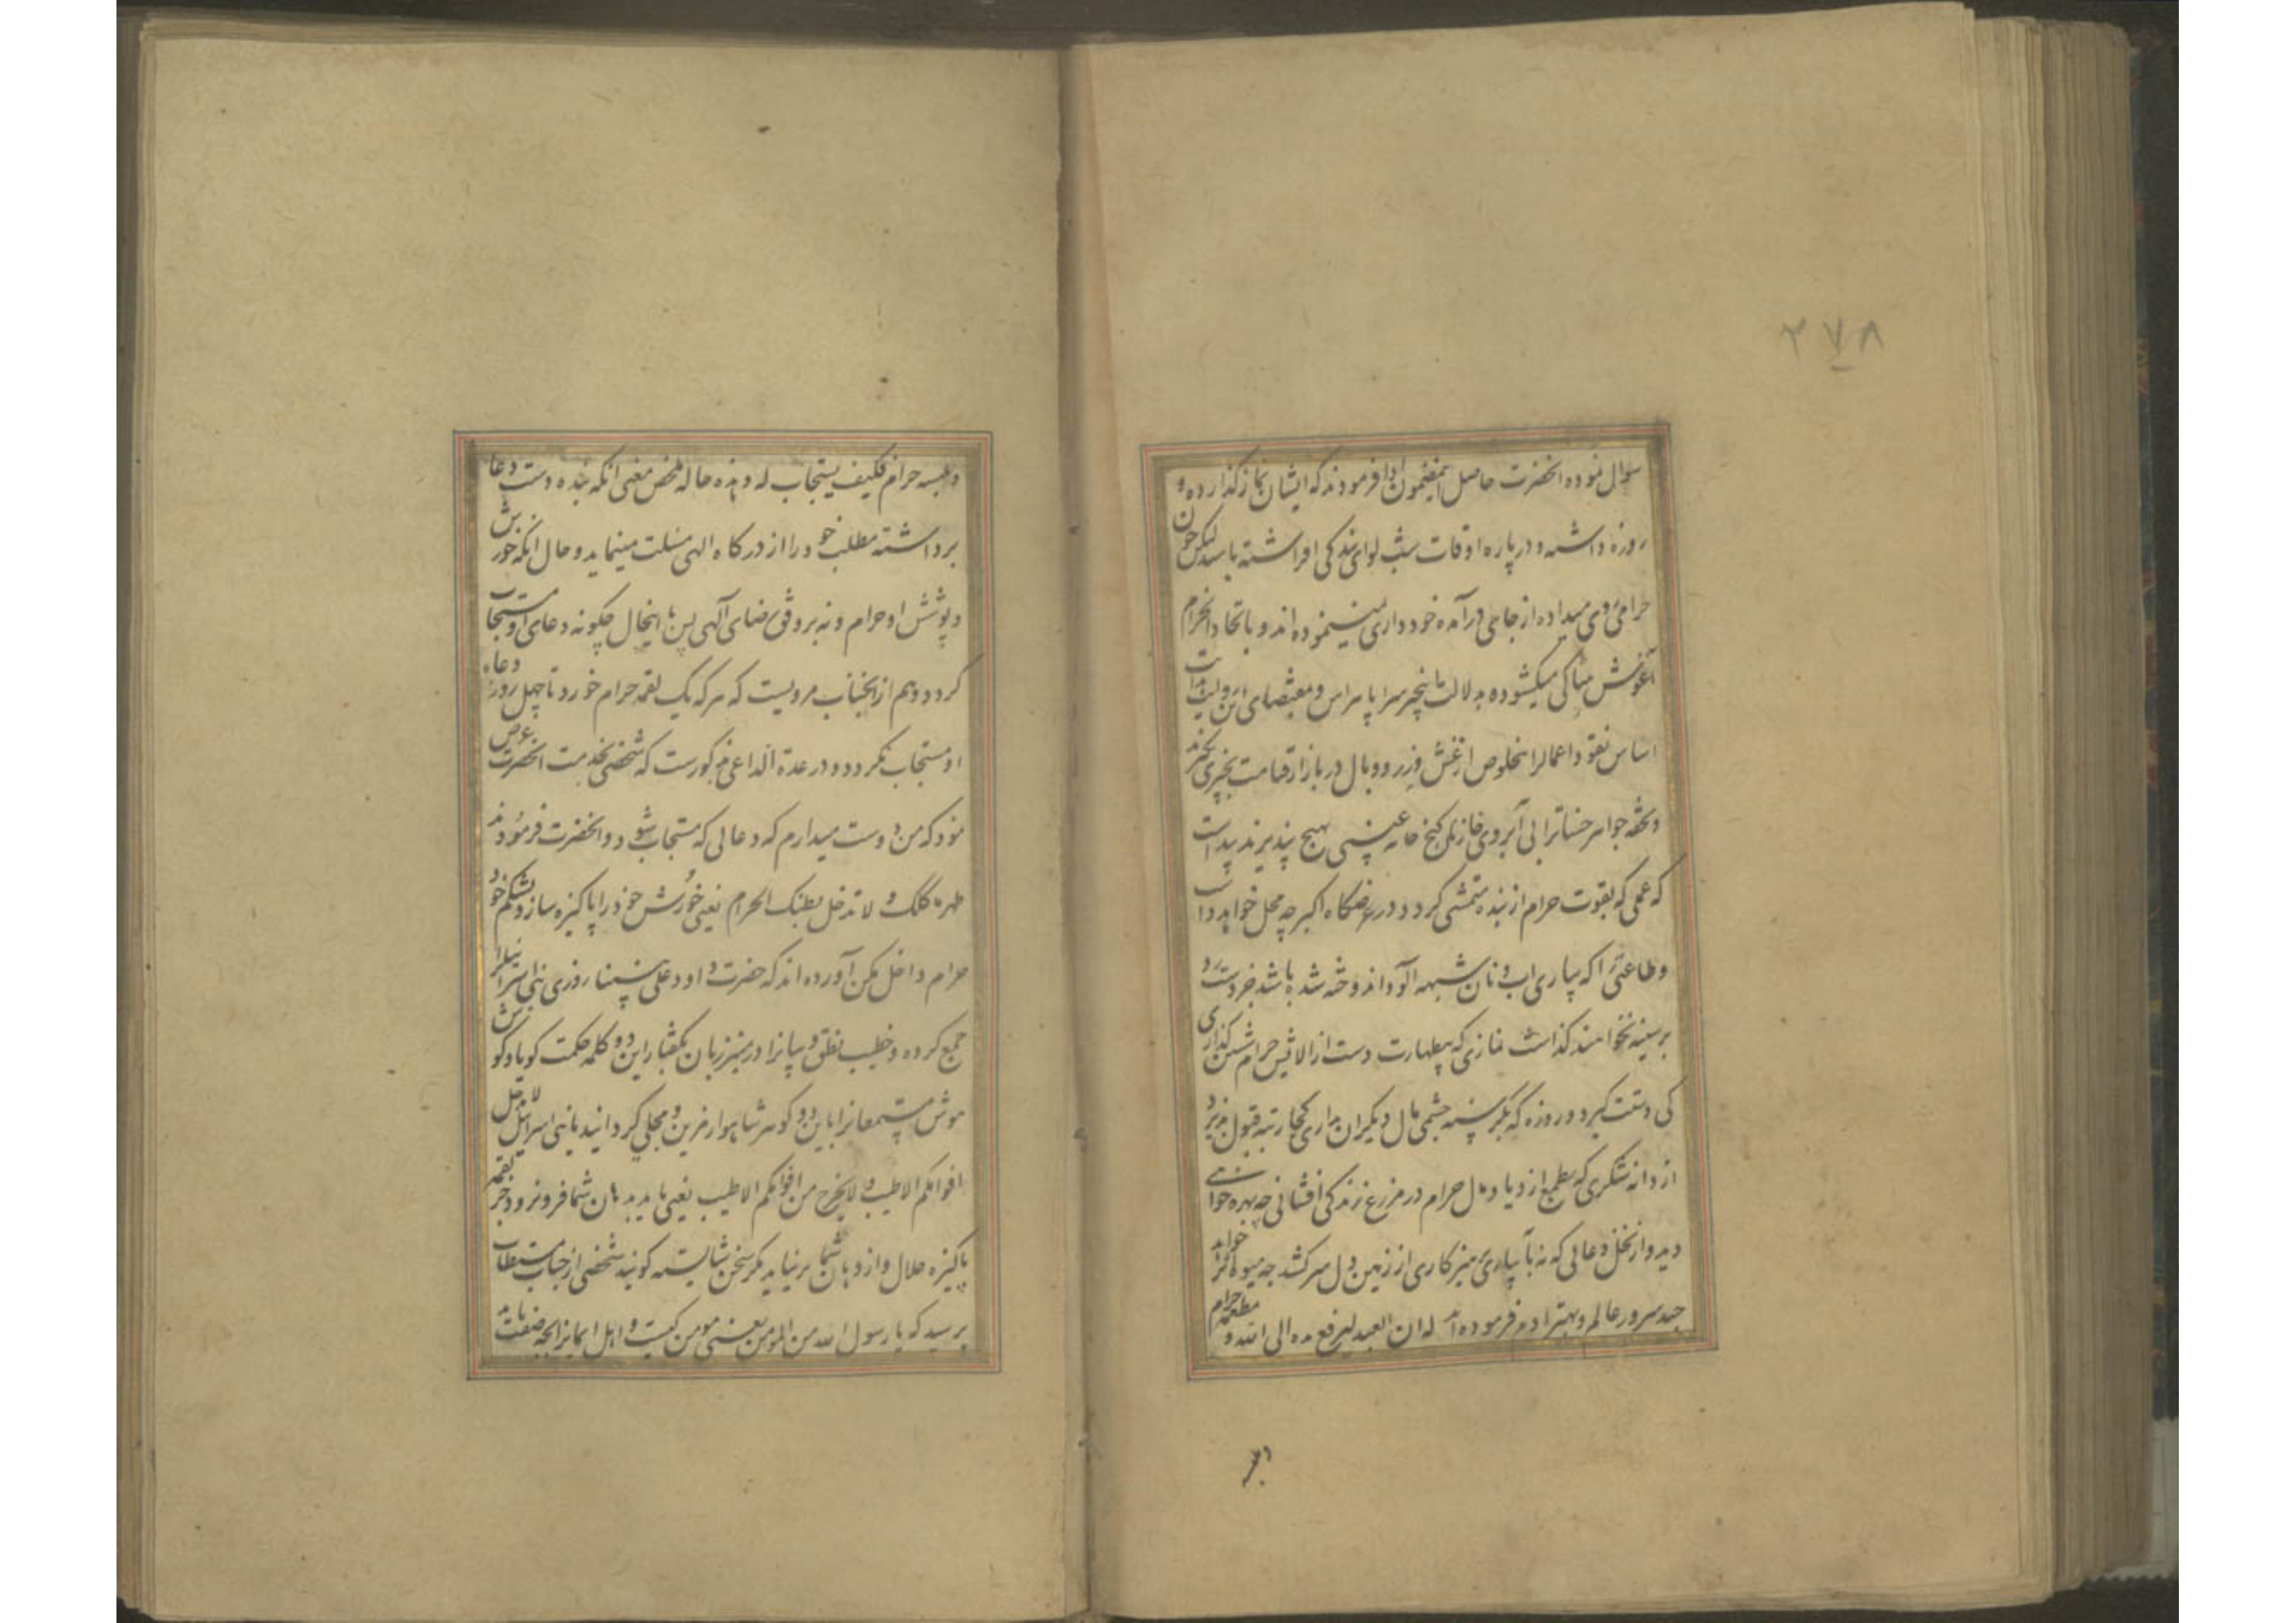 ۲۷۸
سوال نموده انحضرت حاصل اینمضمون ادا فرمودند که ایشان نماز گذارده و
روزه داشته و در پاره اوقات شب لوای بندکی افراشته باشند لیکن چون
حرامی روی میداده از جا می درآمده خودداری نمینموده اند و باتخاذ الحرام
آغوش میکشوده بدلالت اینخبر سراپا و مقتضای این روایت
اساس نقود اعمالرا بخلوص از غش وزر و وبال در بازار قیامت بچیزی نخرند
و تحفه جواهر حسناترا بی آبروی خازنان کنج خانه بهیچ نپذیرند پیداست
که عملی که بقوت حرام از بنده متمشی کردد در عرضکاه اکبر چه محل خواهد داشت
و طاعتی را که بیاری آب و نان شبهه آلود اندوخته شده باشد جز دست رد
بر سینه نخواهند کذاشت نمازی که بطهارت دست از الایش حرام نکذاری
کی دستت کیرد و روزه که بکرسنه چشمی مال دیکران بداری کجا رتبه قبول پذیرد
از دانه شکری که بطمع ازدیاد مال حرام در مزرع زندکی افشانی چه بهره خواهی
دید و از نخل دعائی که نه بآبیاری پرهیزکاری از زمین دل سر کشد چه میوه خواهد
سرور عالم و بهتر اولاد آدم فرموده له ان العبد لیرفع یده الی الله و مطعمه حرام
و ملبسه حرام فکیف یستجاب له و هذه حاله ملخص معنی آنکه بنده دست دعا
برداشته مطلب خود را از درکاه الهی مسئلت مینماید و حال آنکه خورش
و پوشش او حرام و نه بر وفق رضای آلهی پس با اینحال چکونه دعای او مستجاب
کردد و هم از انجناب مرویست که هر که یک لقمه حرام خورد تا چهل روز دعاء
او مستجاب نکردد و در عدة الداعی مذکورست که شخصی بخدمت انحضرت عرض
نمود که من دوست میدارم که دعائی که مستجاب شود و انحضرت فرمودند
طهر ماکلک و لا تدخل بطنک الحرام یعنی خورش خود را پاکیزه ساز و بشکم خود
حرام داخل مکن آورده اند که حضرت داود علی نبینا روزی بنی اسرائیلرا
جمع کرده و خطیب نطق و بیانرا در منبر زبان بکفتار این دو کلمه حکمت کویا و کوش
هوش مستمعانرا باین دو کوهر شاهوار مزین و محلی کردانید یا بنی اسرائیل لا یدخل
افواهکم الا طیب و لا یخرج من افواهکم الا طیب یعنی باید بدهان شما فرو نرود جز لقمه
پاکیزه حلال و از دهان شما بر نیاید مکر سخن شایسته کویند شخصی از جناب مستطاب
پرسید که یا رسول الله من المومن یعنی مومن کیست و اهل ایمانرا چه صفت باید